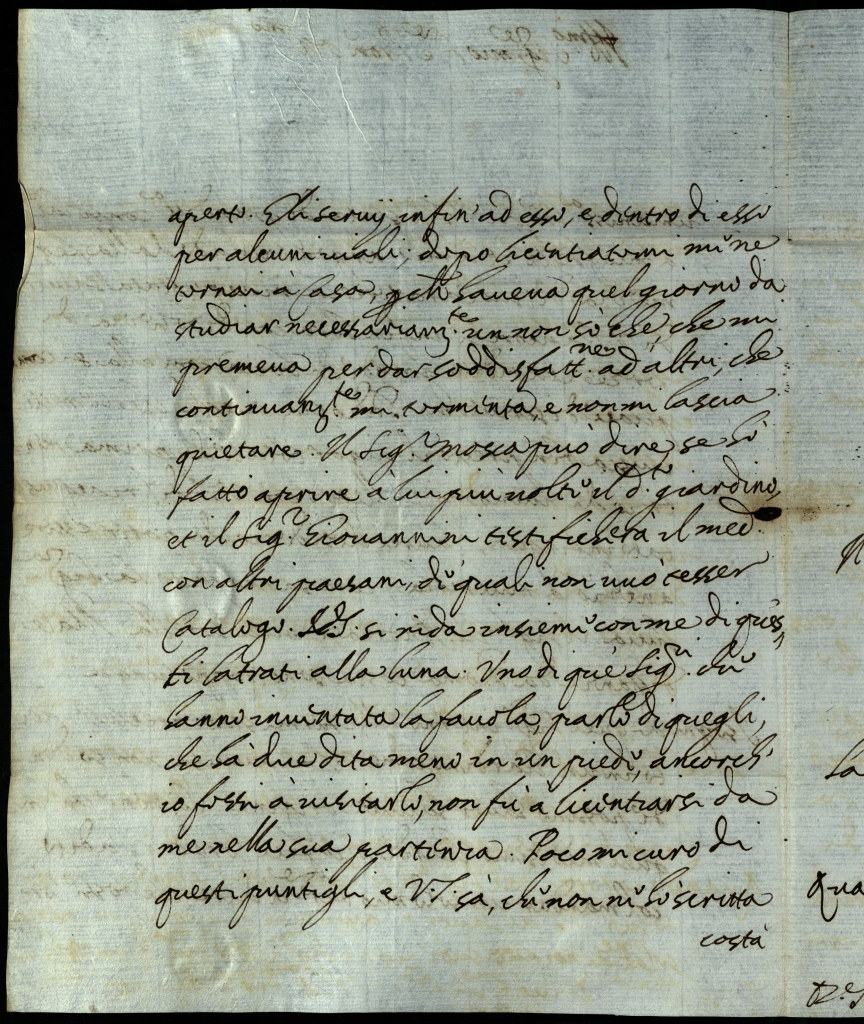 aperto. Gli servij infin' ad esso, e dentro di esso
per alcuni viali; dopo licentiatomi me ne
tornai à Casa, p ch' haueua quel giorno da
studiar necessariam.te un non sò che, che mi
premeua per dar soddisfatt.ne ad' altri, che
continuam.te mi tormenta, e non mi lascia
quietare. Il Sig.r Mosca puo dire, se hò
fatto aprire à lui più uolte il d.o giardino,
et il Sig.r Giouannini testificherà il med.
con altri paesani, de quali non uuò tesser
Catalogo. V.S. si rida insieme con me di ques,,
ti latrati alla luna. Uno di què Sig.ri che
hanno inuentata la fauola, parlo di quegli,
che hà due dita meno in un piede, ancorch'
io fossi à uisitarlo, non fù a licentiarsi da
me nella sua partenza. Poco mi curo di
questi puntigli, e V.S. sà, che non ne hò scritta
costà
La
Qua